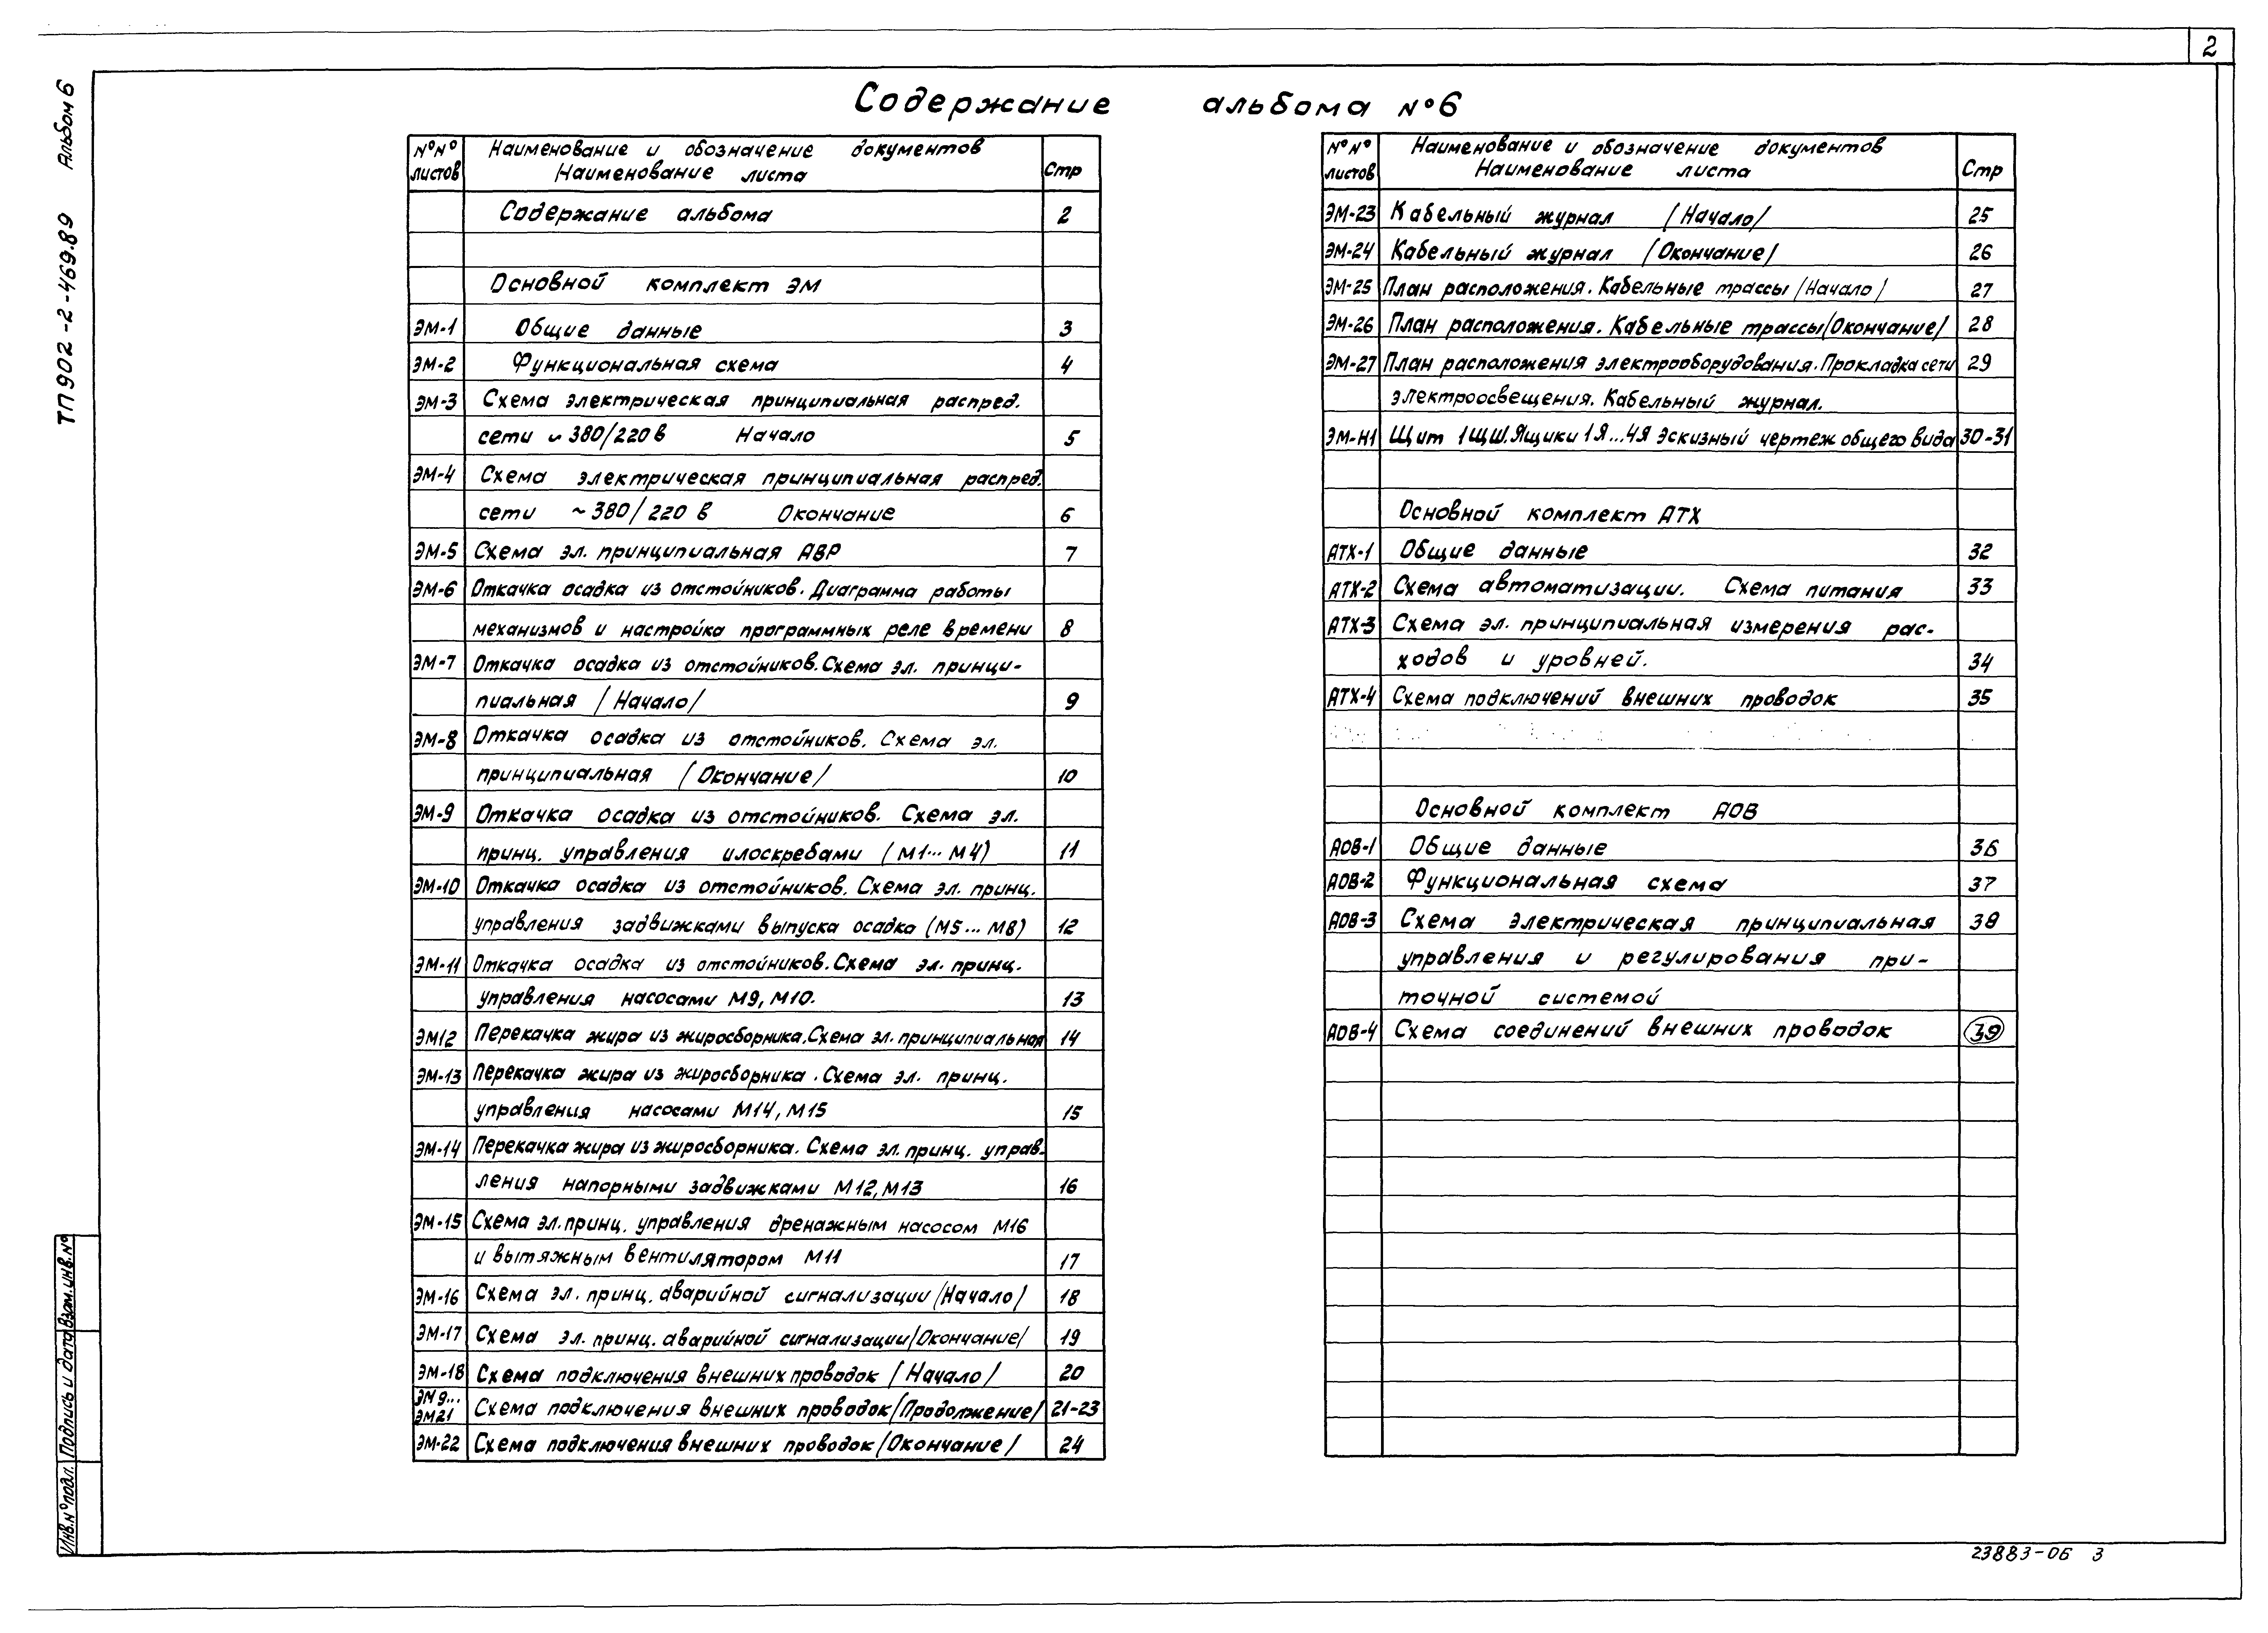 2
Содержание альбома №6
ТП902-2-469.89 Альбом 6
№№ листов Наименование и обозначение документов Наименование листа Стр
Содержание альбома 2
Основной комплект ЭМ
ЭМ-1 Общие данные 3
ЭМ-2 Функциональная схема 4
ЭМ-3 Схема электрическая принципиальная распред.
сети ~380/220 в Начало 5
ЭМ-4 Схема электрическая принципиальная распред.
сети ~380/220 в Окончание 6
ЭМ-5 Схема эл. принципиальная АВР 7
ЭМ-6 Откачка осадка из отстойников. Диаграмма работы
механизмов и настройка программных реле времени 8
ЭМ-7 Откачка осадка из отстойников. Схема эл. принци-
пиальная /Начало/ 9
ЭМ-8 Откачка осадка из отстойников. Схема эл.
принципиальная /Окончание/ 10
ЭМ-9 Откачка осадка из отстойников. Схема эл.
принц. управления илоскребами (М1...М4) 11
ЭМ-10 Откачка осадка из отстойников. Схема эл. принц.
управления задвижками выпуска осадка (М5...М8) 12
ЭМ-11 Откачка осадка из отстойников. Схема эл. принц.
управления насосами М9, М10. 13
ЭМ12 Перекачка жира из жиросборника. Схема эл. принципиальная 14
ЭМ-13 Перекачка жира из жиросборника. Схема эл. принц.
управления насосами М14, М15 15
ЭМ-14 Перекачка жира из жиросборника. Схема эл. принц. управ-
ления напорными задвижками М12, М13 16
ЭМ-15 Схема эл. принц. управления дренажным насосом М16
и вытяжным вентилятором М11 17
ЭМ-16 Схема эл. принц. аварийной сигнализации /Начало/ 18
ЭМ-17 Схема эл. принц. аварийной сигнализации /Окончание/ 19
ЭМ-18 Схема подключения внешних проводок /Начало/ 20
ЭМ9... ЭМ21 Схема подключения внешних проводок /Продолжение/ 21-23
ЭМ-22 Схема подключения внешних проводок /Окончание/ 24
№№ листов Наименование и обозначение документов Наименование листа Стр
ЭМ-23 Кабельный журнал /Начало/ 25
ЭМ-24 Кабельный журнал /Окончание/ 26
ЭМ-25 План расположения. Кабельные трассы /Начало/ 27
ЭМ-26 План расположения. Кабельные трассы /Окончание/ 28
ЭМ-27 План расположения электрооборудования. Прокладка сети 29
электроосвещения. Кабельный журнал.
ЭМ-Н1 Щит 1ЩШ. Ящики 1Я...4Я Эскизный чертеж общего вида 30-31
Основной комплект АТХ
АТХ-1 Общие данные 32
АТХ-2 Схема автоматизации. Схема питания 33
АТХ-3 Схема эл. принципиальная измерения рас-
ходов и уровней. 34
АТХ-4 Схема подключений внешних проводок 35
Основной комплект АОВ
АОВ-1 Общие данные 36
АОВ-2 Функциональная схема 37
АОВ-3 Схема электрическая принципиальная 38
управления и регулирования при-
точной системой
АОВ-4 Схема соединений внешних проводок 39
Инв.№подл. Подпись и дата Взам.инв.№
23883-06 3